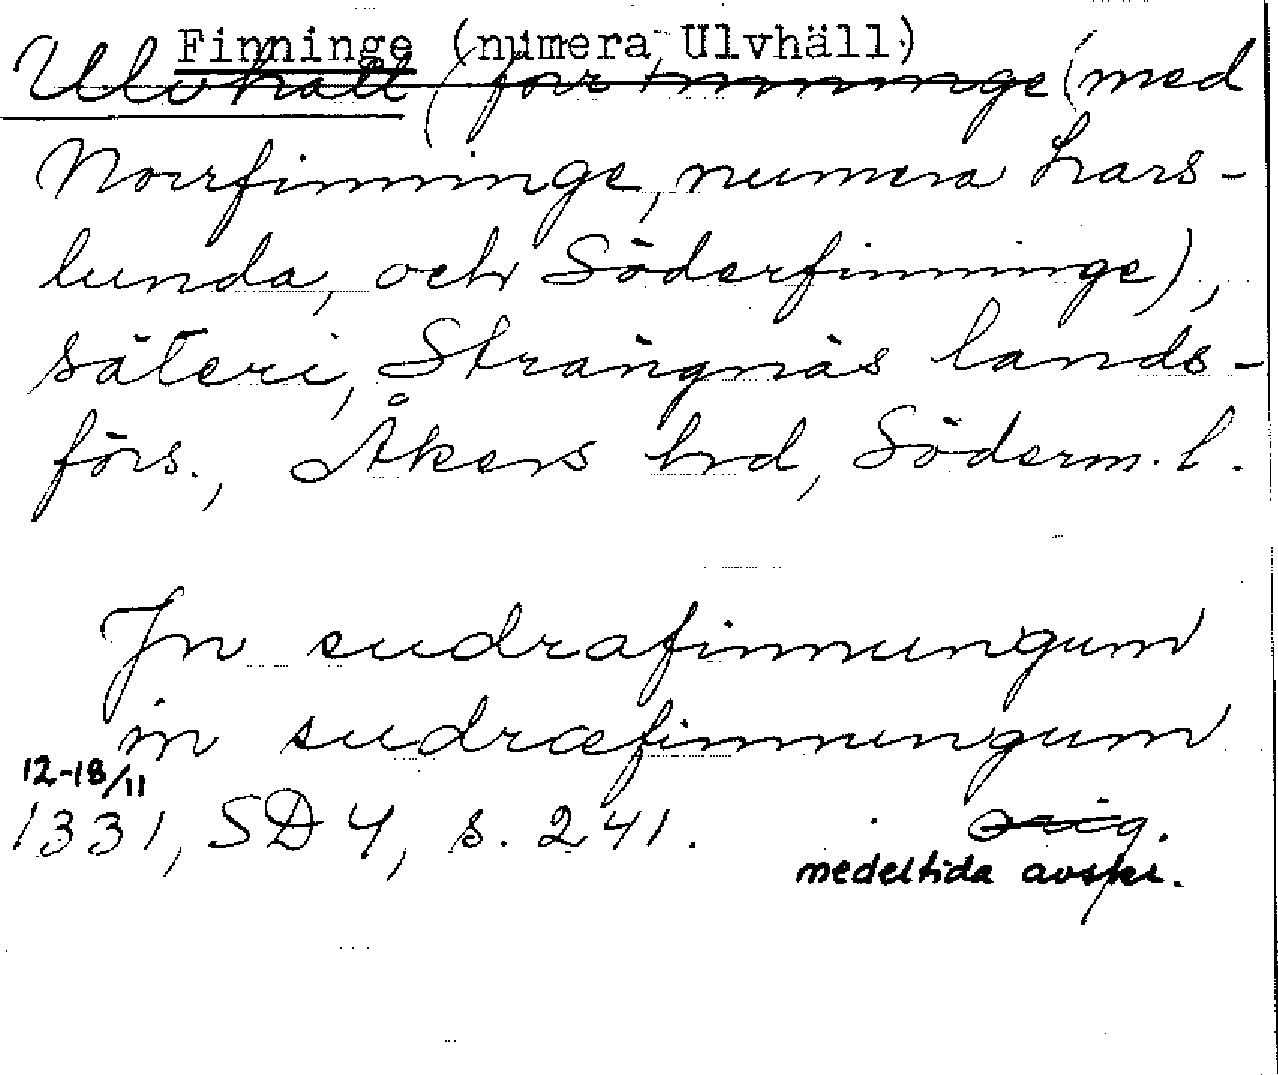 Finninge (numera Ulvhäll)
Ulvhäll (förr Finninge (med
Norrfinninge, numera Lars-
lunda, och Söderfinninge),
säteri, Strängnäs lands-
förs., Åkers hrd, Söderm. l.
Jn sudrafinnungum
in sudræfinnungum
12-18/11
1331, SD 4, s. 241. orig.
medeltida avskr.